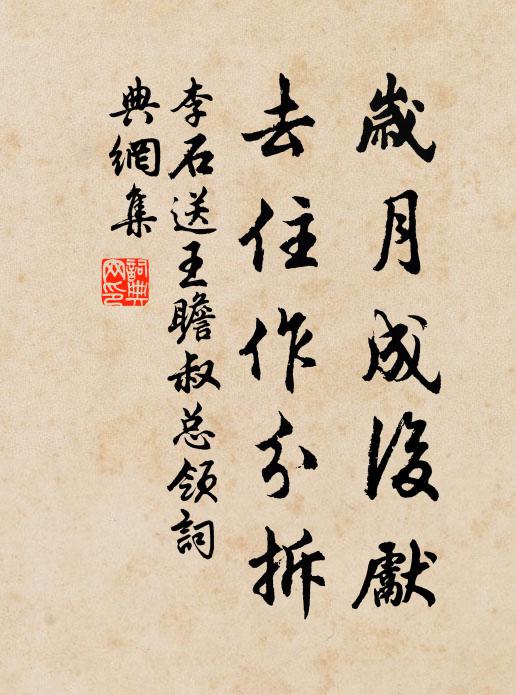 歲月成後獻
去住作分拆
李石送王瞻叔总領詞
典網集
詞典
网印